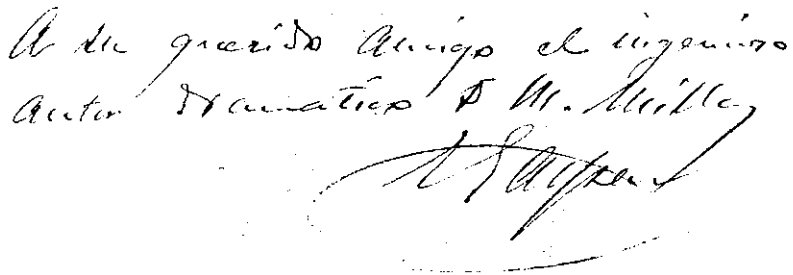 A su querido amigo el ingenioso
autor dramatico D M. Millas